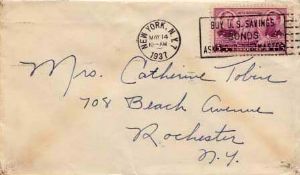 NEW YORK, N.Y. 7
MAY 14
10 - AM
1937
BUY U.S. SAVINGS
BONDS
ASK MASTER
Mrs. Catherine Tobin
708 Beach Avenue
Rochester
N.Y.